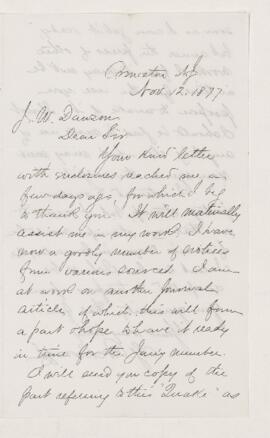 Princeton NJ
Nov. 12. 1877
J. W. Dawson
Dear Sir
Your kind letter
with enclosures reached me a
few days ago for which I beg
to thank you. It will materially
assist me in my work. I have
now a goodly number of notices
from various sources. I am
at work on another Journal
article, of which this will form
a part & hope to have it ready
in time for the Jany number.
I will send you copy of the
part referring to this "Quake" as